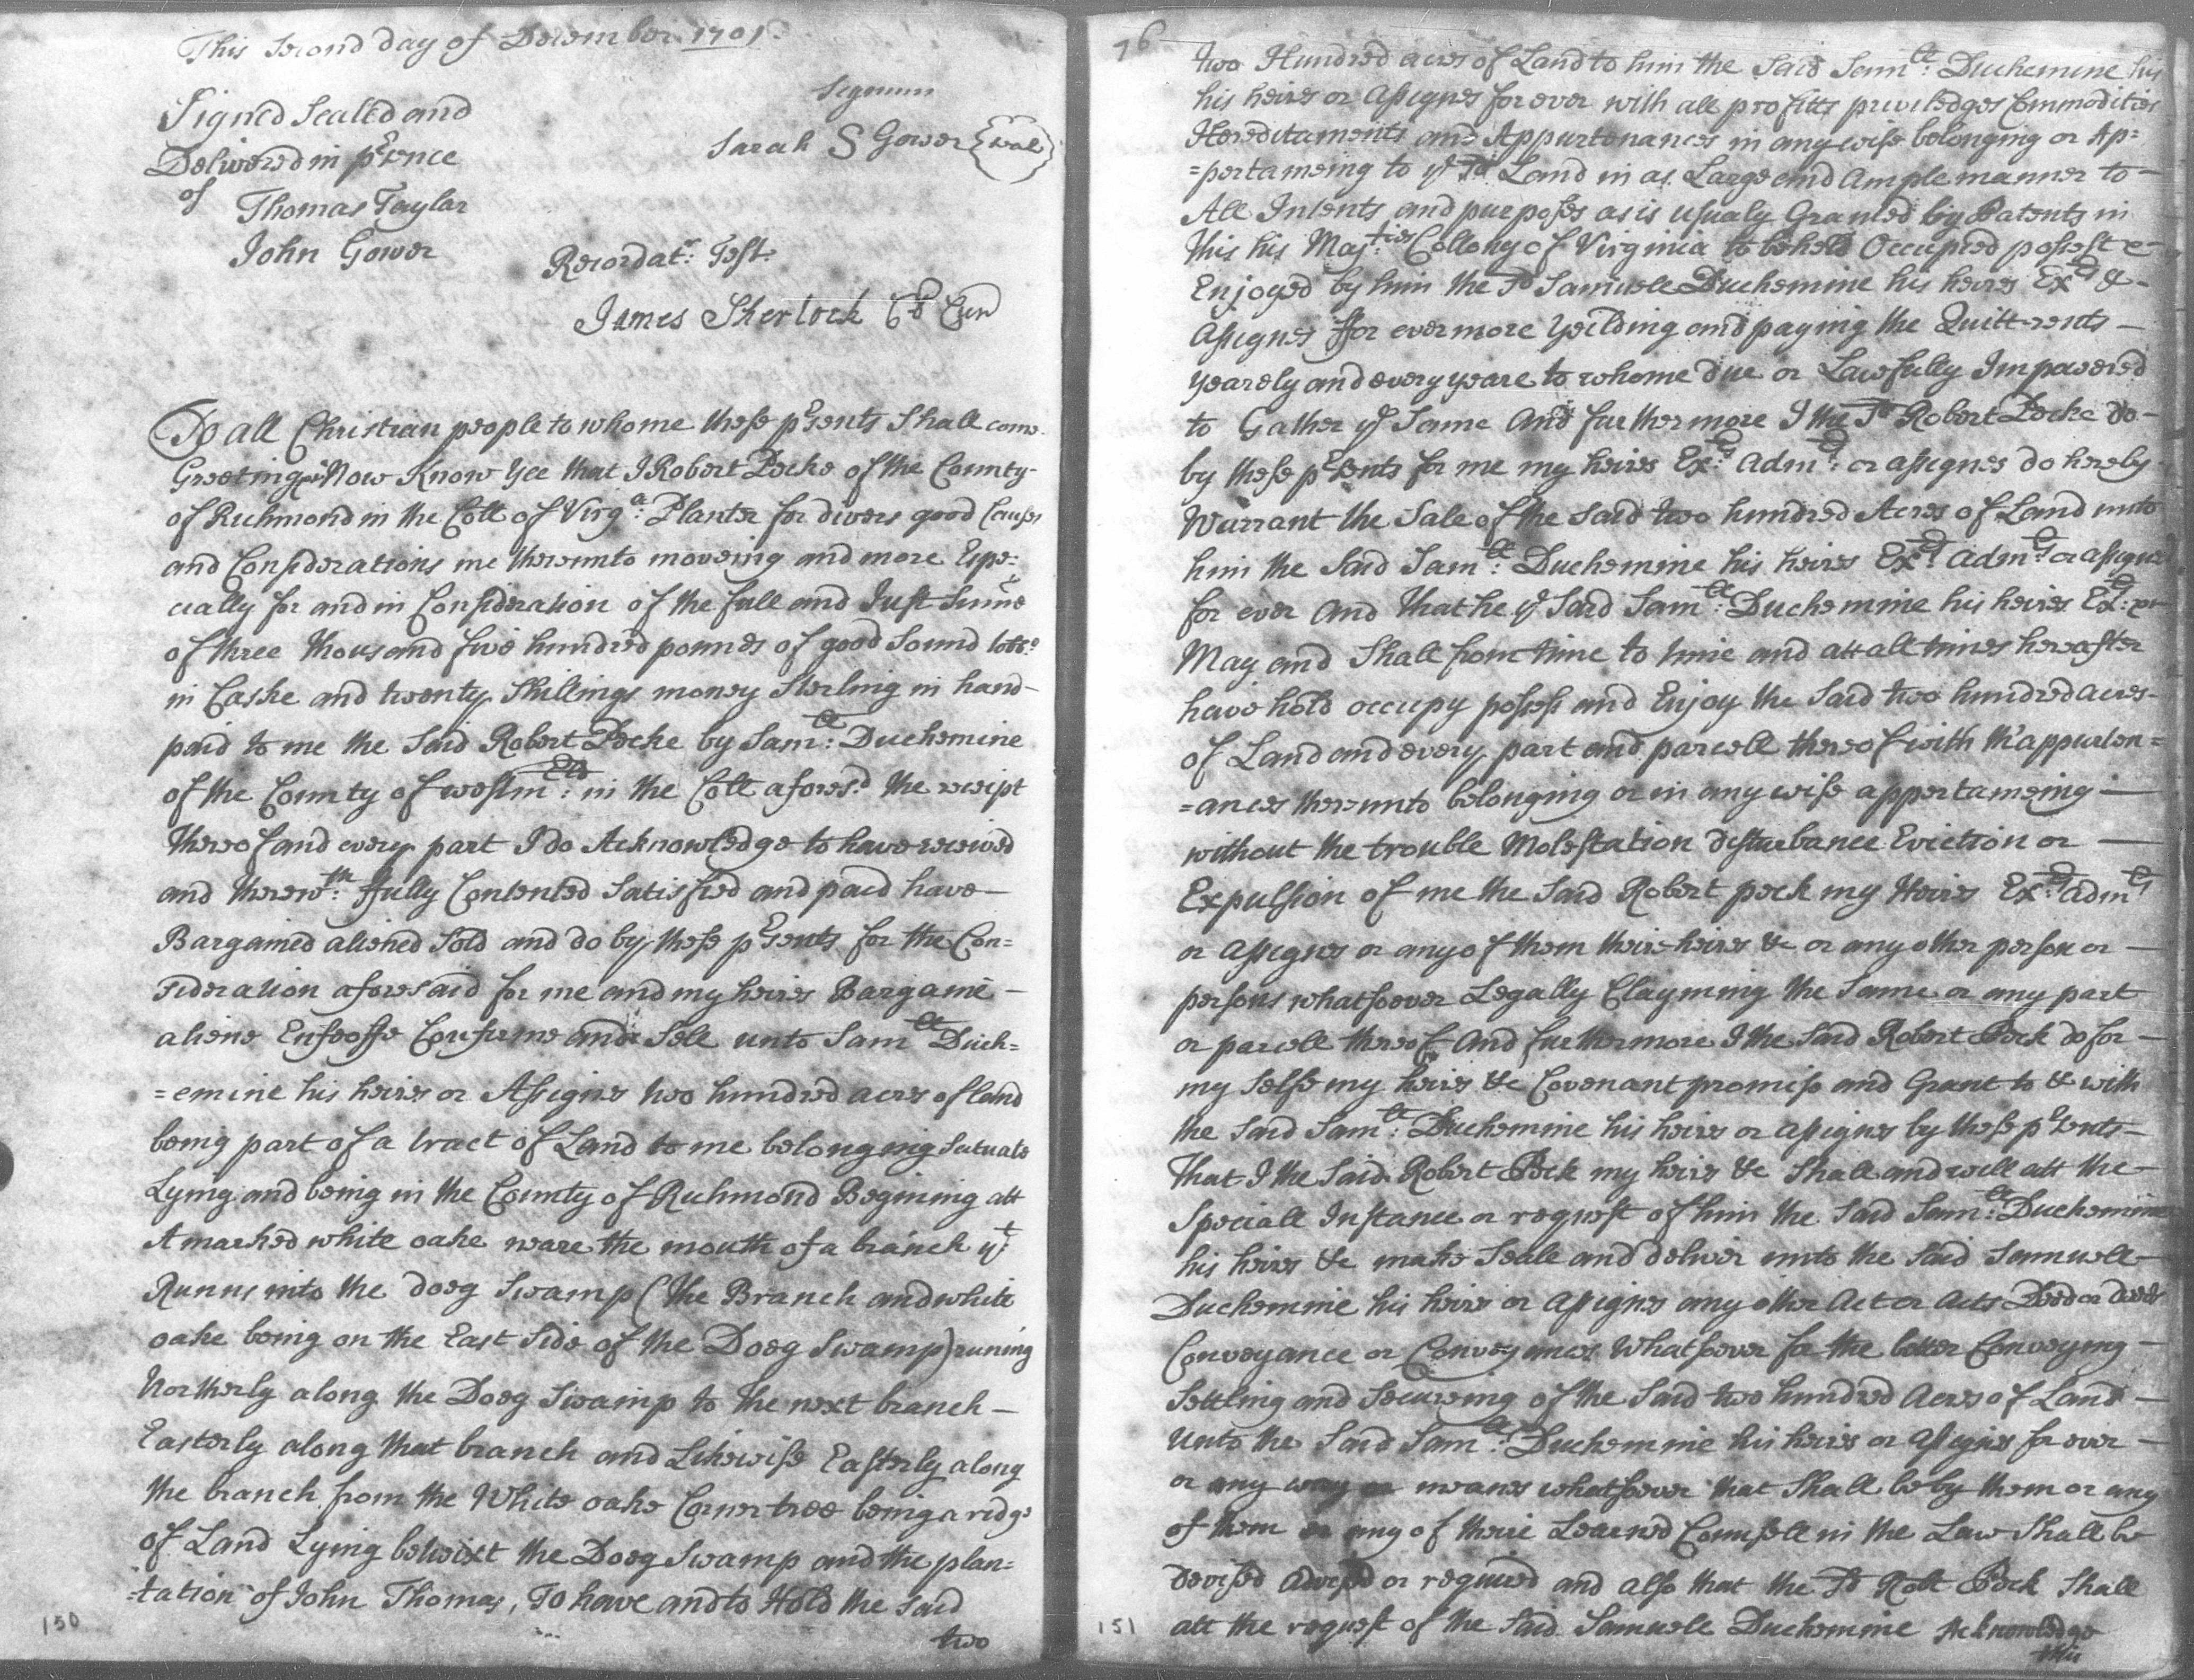 This Second day of December 1701
Signum
Signed Sealed and
Sarah S Gower Seal
Delivered in prsence
of
Thomas Taylar
John Gower
Recordatr: Test:
James Sherlock Cl Cur
To all Christian people to whome these prsents Shall come
Greeting Now Know Yee that I Robert Pecke of the County
of Richmond in the Coll of Virga: Planter for divers good Causes
and Considerations me thereunto moveing and more Espe:
cially for and in Consideration of the full and Just Sume
of three thousand five hundred pounds of good Sound tobb:o
in Caske and twenty Shillings money Sterling in hand
paid to me the Said Robert Pecke by Samll: Duchemine
of the County of westmrld: in the Coll aforesd. the receipt
thereof and every part I do Acknowledge to have received
and therewth: ffully Contented Satisfied and paid have
Bargained aliened Sold and do by these prsents for the Con=
sideration aforesaid for me and my heires Bargaine
aliene Enfeoffe Confirme and Sell unto Samll Duch=
=emine his heires or Assignes two hundred acres of land
being part of a tract of Land to me belonging Scituate
Lying and being in the County of Richmond Begining att
A marked white oake neare the mouth of a branch yt:
Runns into the doeg Swamp (the Branch and white
oake being on the East Side of the Doeg Swamp) runing
Northerly along the Doeg Swamp to the next branch
Easterly along that branch and Likewise Easterly along
the branch from the White oake Corner tree being a ridge
of Land Lying betwixt the Doeg Swamp and the plan=
=tation of John Thomas, To have and to Hold the said
two
150
76
two Hundred acres of Land to him the Said Samll: Duchemine his
his heires or Assignes forever with all profitts priviledges Commodities
Hereditaments and Appurtenances in any wise belonging or Ap=
=pertaineing to ye Sd Land in as Large and Ample manner to
All Intents and purposes as is usualy Granted by Patents in
this his Majties Collony of Virginia to be held Occupied possest &
Enjoyed by him the Sd Samuell Duchemine his heires Exrs &
Assignes ffor evermore yeilding and paying the Quitt-rents
yearely and every yeare to whome due or Lawfully Impowered
to Gather ye Same And furthermore I the Sd Robert Pecke do
by these prsents for me my heires Exrs: Admrs: or assignes do hereby
Warrant the Sale of the Said two hundred Acres of Land unto
him the Said Samll: Duchemine his heires Exrs Admrs: or assignes
for ever And that he ye Said Samll: Duchemine his heires Exrs: &c
May and Shall from time to time and att all times hereafter
have hold occupy possess and Enjoy the Said two hundred acres
of Land and every part and parcell thereof with th'appurten=
=ances thereunto belonging or in any wise appertaineing
without the trouble Molestation disturbance Eviction or
Expulsion of me the Said Robert peck my Heires Exrs: Admrs
or assignes or any of them their heires &c or any other person or
persons whatsoever Legally Clayming the Same or any part
or parcell thereof And furthermore I the Said Robert Peck do for
my Selfe my heires &c Covenant promiss and Grant to & with
the Said Samll: Duchemine his heires or assignes by these prsents
That I the Said Robert Peck my heires &c Shall and will att the
Speciall Instance or request of him the Said Samll: Duchemine
his heires &c make Seale and deliver unto the Said Samuell
Duchemine his heires or Assignes any other Act or Acts Deed or deeds
Conveyance or Conveyances Whatsoever for the better Conveying
Settling and Secureing of the Said two hundred Acres of Land
Unto the Said Samll: Duchemine his heires or Assignes for ever
or any way or meanes whatsoever that Shall be by them or any
of them or any of their Learned Counsell in the Law Shall be
devised advised or required and also that the Sd Robt Peck Shall
att the request of the Said Samuell Duchemine Acknowledge
this
151